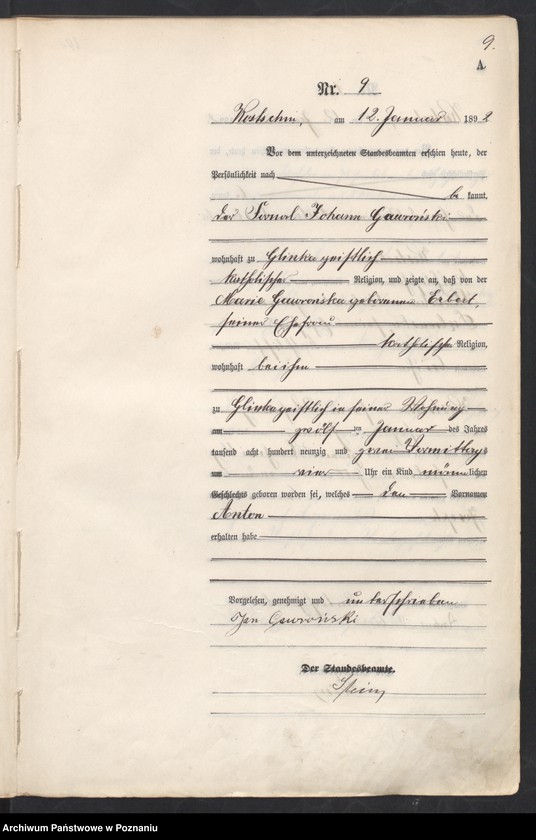 9.
A
Nr. 9
Kostschin, am 12. Januar 1892
Vor dem unterzeichneten Standesbeamten erschien heute, der
Persönlichkeit nach
be kannt,
der Fornal Johann Gawroński
wohnhaft zu Glinka geistlich
katholischer Religion, und zeigte an, daß von der
Marie Gawrońska geborenen Erbert,
seiner Ehefrau
katholischer Religion,
wohnhaft bei ihm
zu Glinka geistlich in seiner Wohnung
am zwölf ten Januar des Jahres
tausend acht hundert neunzig und zwei Vormittags
um vier Uhr ein Kind männlichen
Geschlechts geboren worden sei, welches den Vornamen
Anton
erhalten habe
Vorgelesen, genehmigt und unterschrieben
Jan Gawroński
Der Standesbeamte.
Archiwum Państwowe w Poznaniu